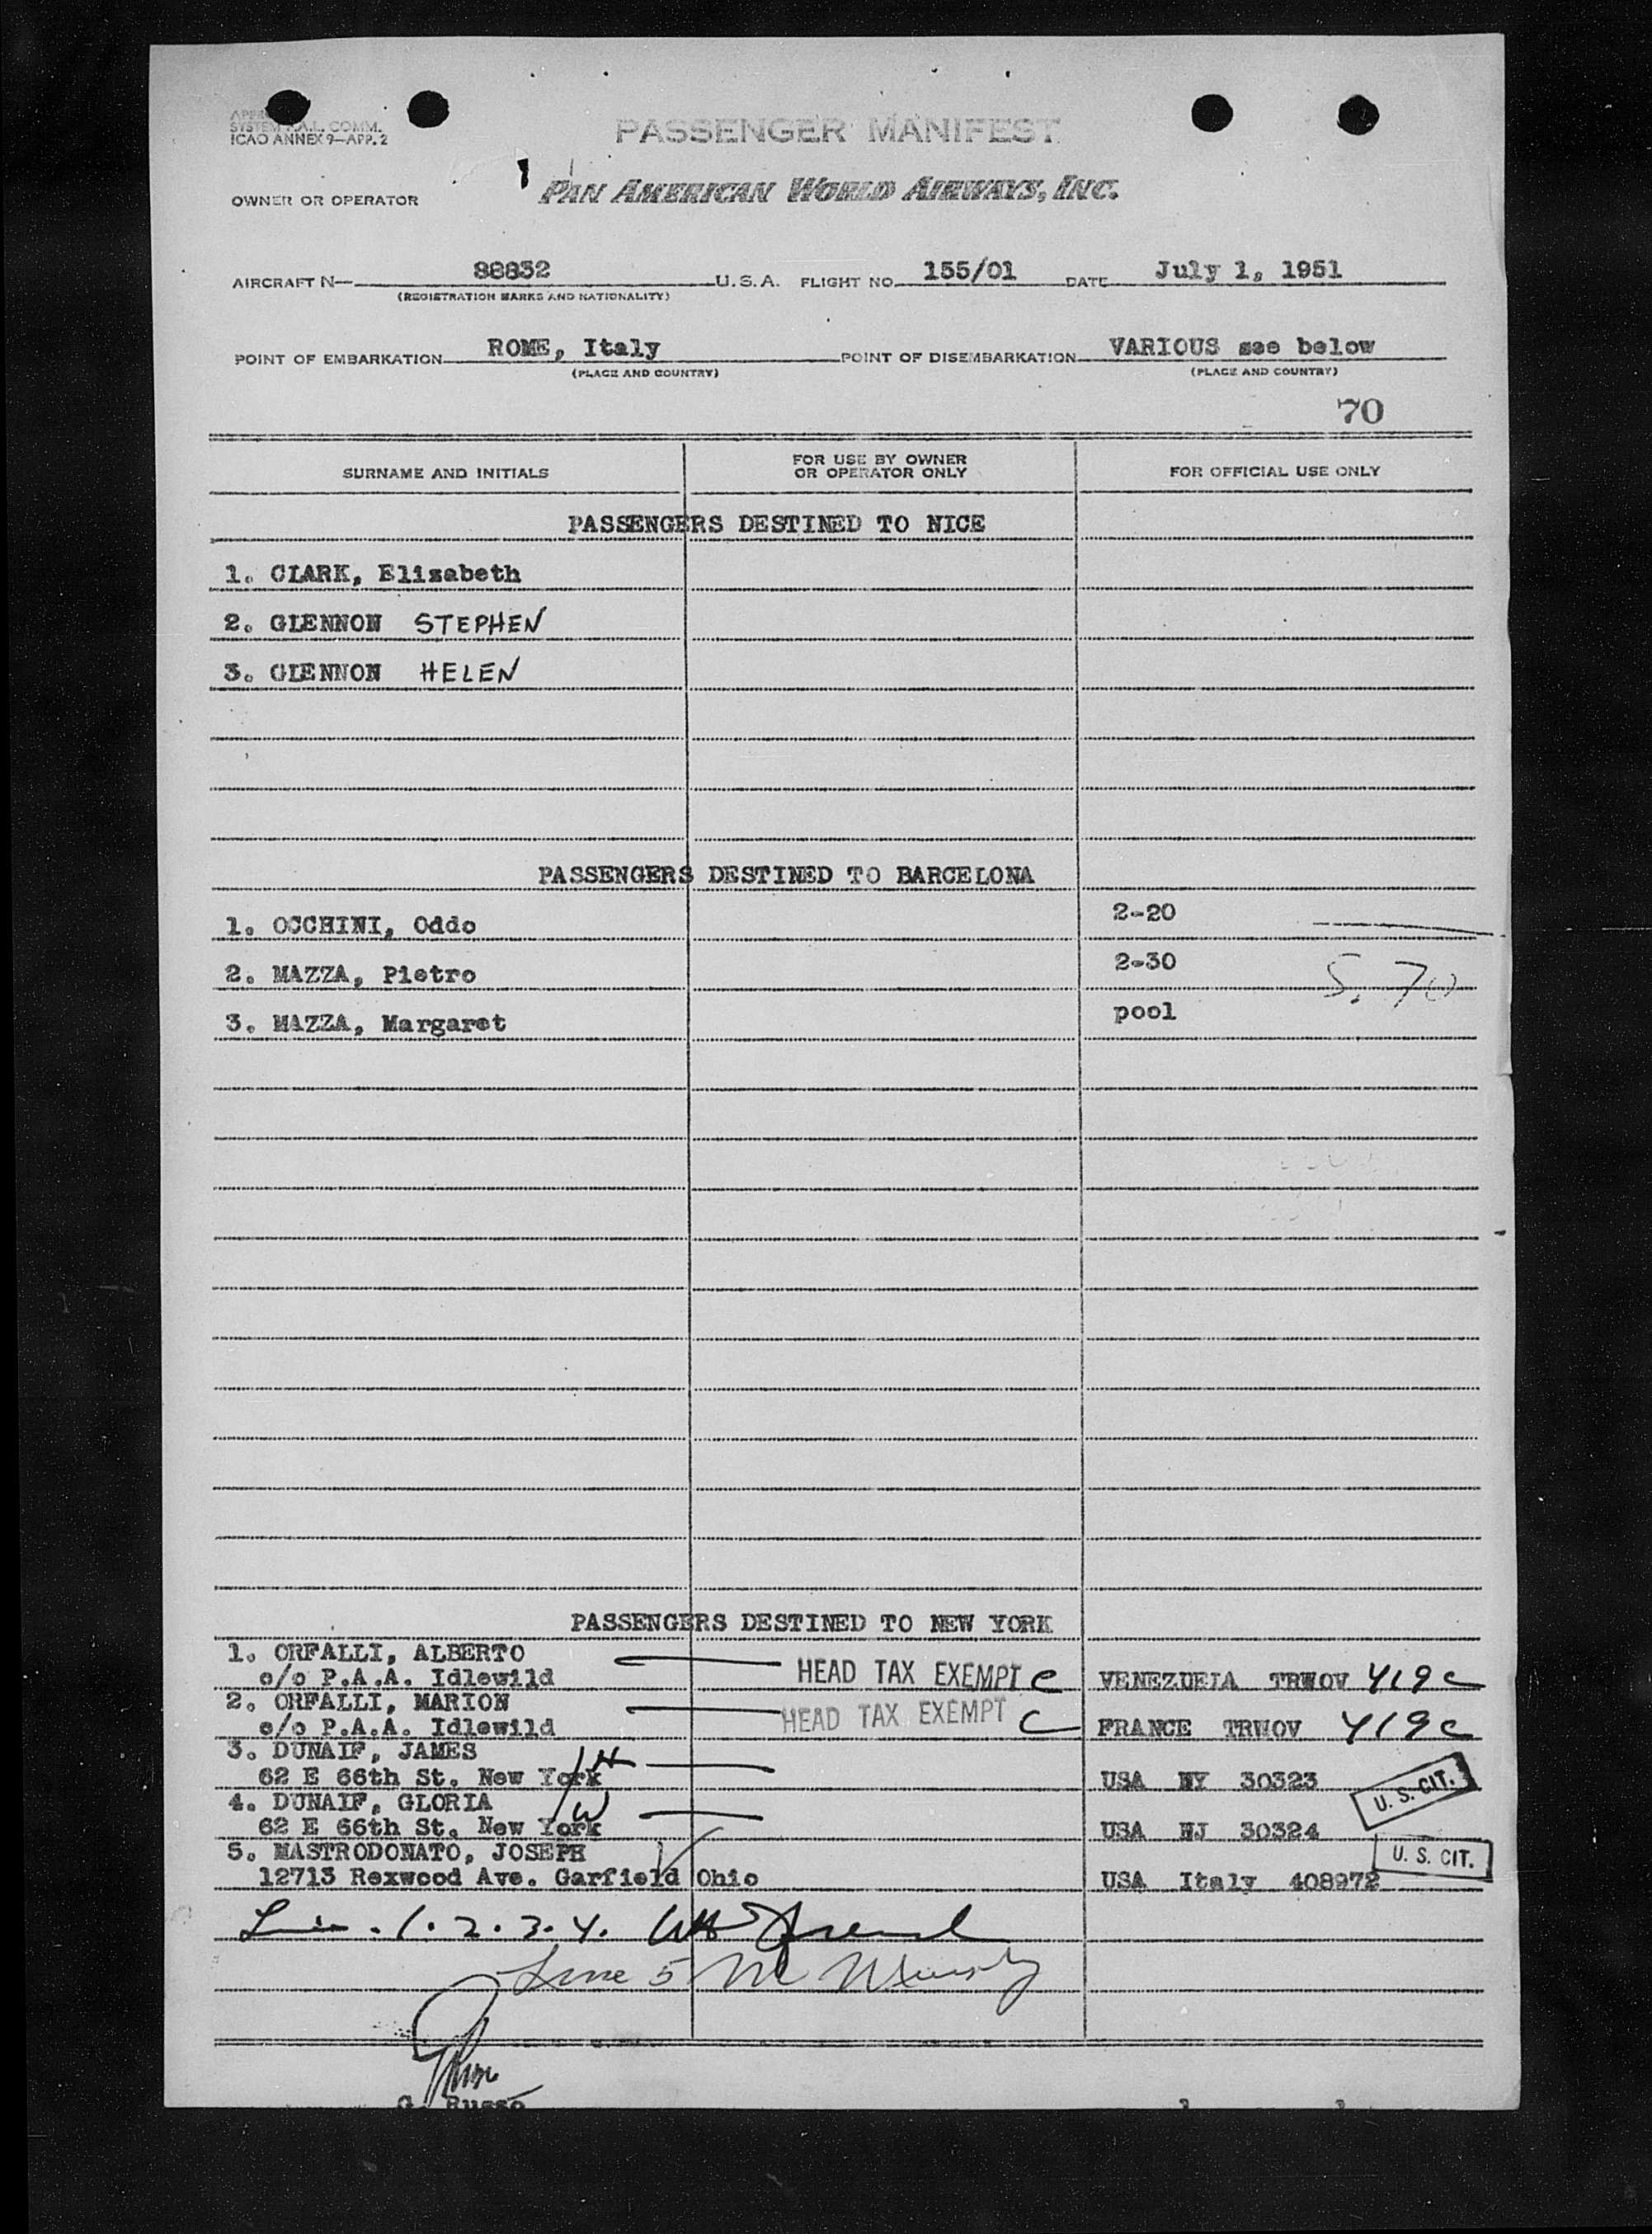 SYSTEM P.A.L. COMM.
ICAO ANNEX 9—APP. 2
PASSENGER MANIFEST
OWNER OR OPERATOR PAN AMERICAN WORLD AIRWAYS, INC.
AIRCRAFT N— 88832 U.S.A. FLIGHT NO. 155/01 DATE July 1, 1951
(REGISTRATION MARKS AND NATIONALITY)
POINT OF EMBARKATION ROME, Italy POINT OF DISEMBARKATION VARIOUS see below
(PLACE AND COUNTRY) (PLACE AND COUNTRY)
70
SURNAME AND INITIALS FOR USE BY OWNER OR OPERATOR ONLY FOR OFFICIAL USE ONLY
PASSENGERS DESTINED TO NICE
1. CLARK, Elizabeth
2. GLENNON STEPHEN
3. GLENNON HELEN
PASSENGERS DESTINED TO BARCELONA
1. OCCHINI, Oddo 2-20
2. MAZZA, Pietro 2-30 S. 70
3. MAZZA, Margaret pool
PASSENGERS DESTINED TO NEW YORK
1. ORFALLI, ALBERTO
c/o P.A.A. Idlewild HEAD TAX EXEMPT C VENEZUELA TRWOV 419c
2. ORFALLI, MARION
c/o P.A.A. Idlewild HEAD TAX EXEMPT C FRANCE TRWOV 419c
3. DUNAIF, JAMES
62 E 66th St. New York H USA NY 30323 U. S. CIT.
4. DUNAIF, GLORIA
62 E 66th St. New York W USA NJ 30324
5. MASTRODONATO, JOSEPH U. S. CIT.
12713 Rexwood Ave. Garfield Ohio USA Italy 408972
1. 2. 3. 4.
Line 5
G. Russo